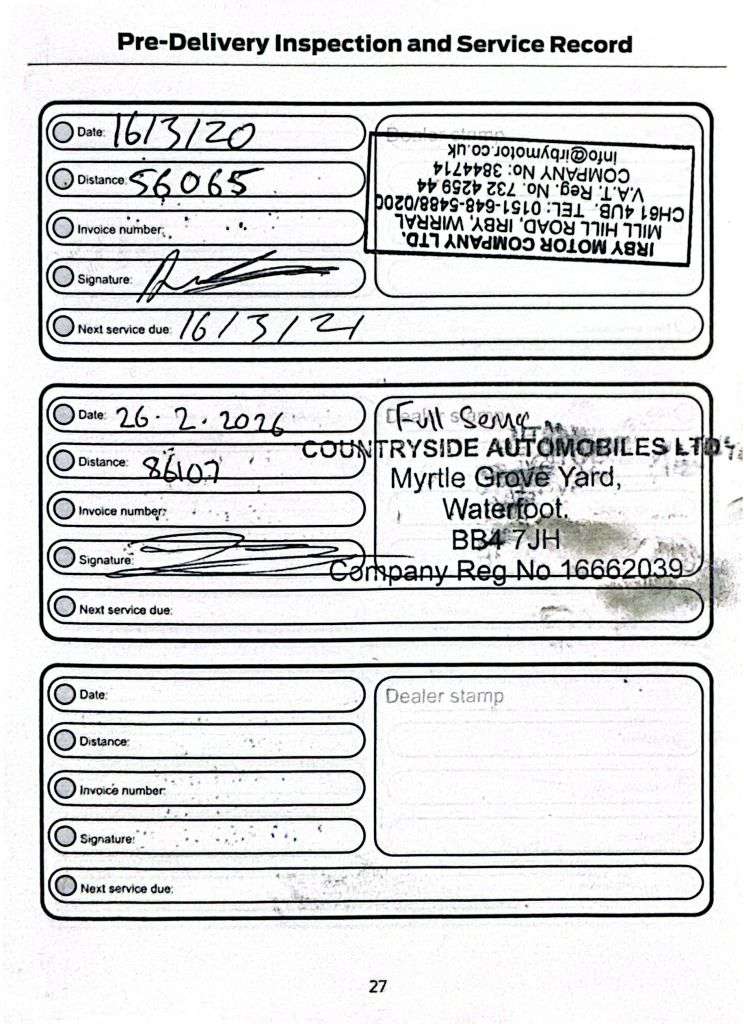 Pre-Delivery Inspection and Service Record
Date: 16/3/20
Distance: 56065
Invoice number:
Signature:
Next service due: 16/3/21
Dealer stamp
IRBY MOTOR COMPANY LTD.
MILL HILL ROAD, IRBY, WIRRAL
CH61 4UB. TEL: 0151-648-5488/0200
V.A.T. Reg. No. 732 4259 44
COMPANY No: 3844714
Info@irbymotor.co.uk
Date: 26.2.2026
Distance: 86107
Invoice number:
Signature:
Next service due:
Dealer stamp
Full
COUNTRYSIDE AUTOMOBILES LTD
Myrtle Grove Yard,
Waterfoot.
BB4 7JH
Company Reg No 16662039
Date:
Distance:
Invoice number:
Signature:
Next service due:
Dealer stamp
27